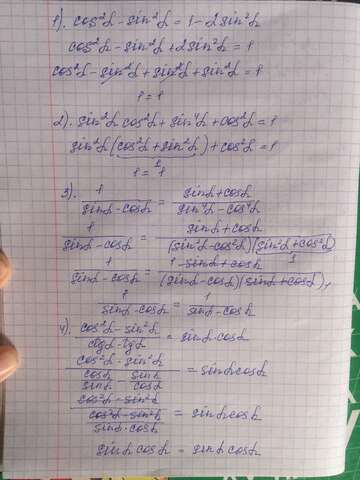 1). cos²α - sin²α = 1 - 2sin²α
cos²α - sin²α + 2sin²α = 1
cos²α - sin²α + sin²α + sin²α = 1
1 = 1
2). sin²α cos²α + sin⁴α + cos²α = 1
sin²α (cos²α + sin²α) + cos²α = 1
1
1 = 1
3). 1/(sinα - cosα) = (sinα + cosα)/(sin⁴α - cos⁴α)
1/(sinα - cosα) = (sinα + cosα)/((sin²α - cos²α)(sin²α + cos²α))
1
1/(sinα - cosα) = (1 sinα + cosα)/((sinα - cosα)(sinα + cosα)1)
1/(sinα - cosα) = 1/(sinα - cosα)
4). (cos²α - sin²α)/(ctgα - tgα) = sinα·cosα
(cos²α - sin²α)/(cosα/sinα - sinα/cosα) = sinα cosα
(cos²α - sin²α)/((cos²α - sin²α)/(sinα·cosα)) = sinα cosα
sinα cosα = sinα cosα